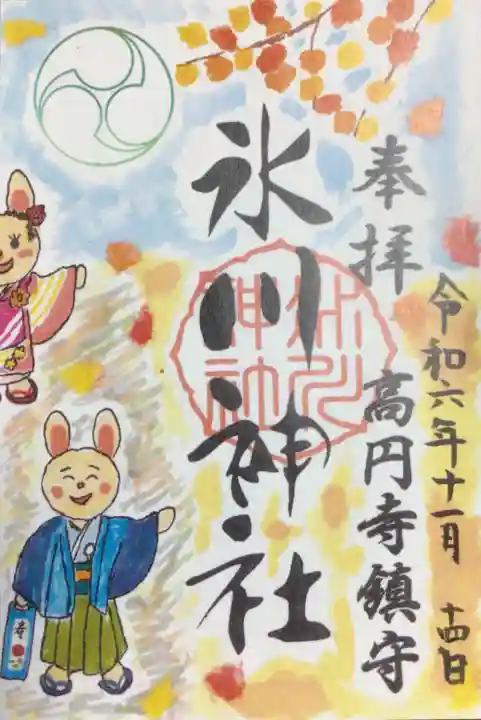 奉拝
高円寺鎮守
令和六年十一月
十四日
氷川神社
氷川
神社
寿